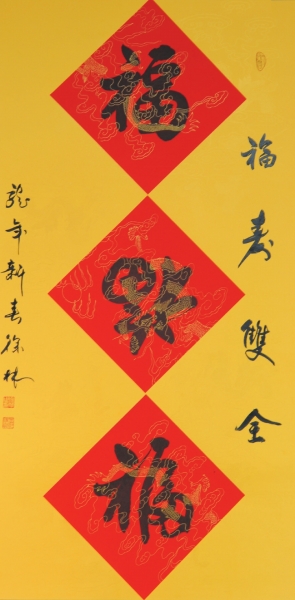 福壽雙全
福
福
龍年新春徐林